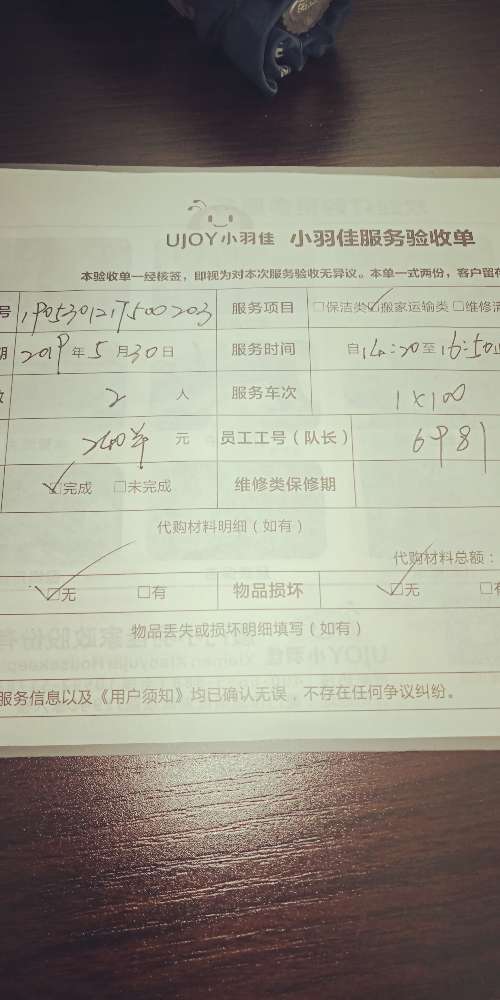 UJOY小羽佳 小羽佳服务验收单
本验收单一经核签，即视为对本次服务验收无异议。本单一式两份，客户留存
号 1905301217500203 服务项目 □保洁类☑搬家运输类□维修清
期 2019年5月30日 服务时间 自14:20至16:50
数 2 人 服务车次 1×100
240 元 员工工号（队长） 6981
☑完成 □未完成 维修类保修期
代购材料明细（如有）
代购材料总额：
☑无 □有 物品损坏 ☑无 □有
物品丢失或损坏明细填写（如有）
服务信息以及《用户须知》均已确认无误，不存在任何争议纠纷。